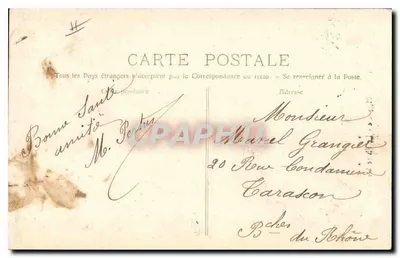 CARTE POSTALE
Tous les Pays étrangers n'acceptent pas la Correspondance au recto. - Se renseigner à la Poste.
Correspondance
Adresse
Bonne Santé
amitié
M.
CPAPHIL
Monsieur
Marcel Grangier
20 Rue Condamine
Tarascon
Bches
du Rhône